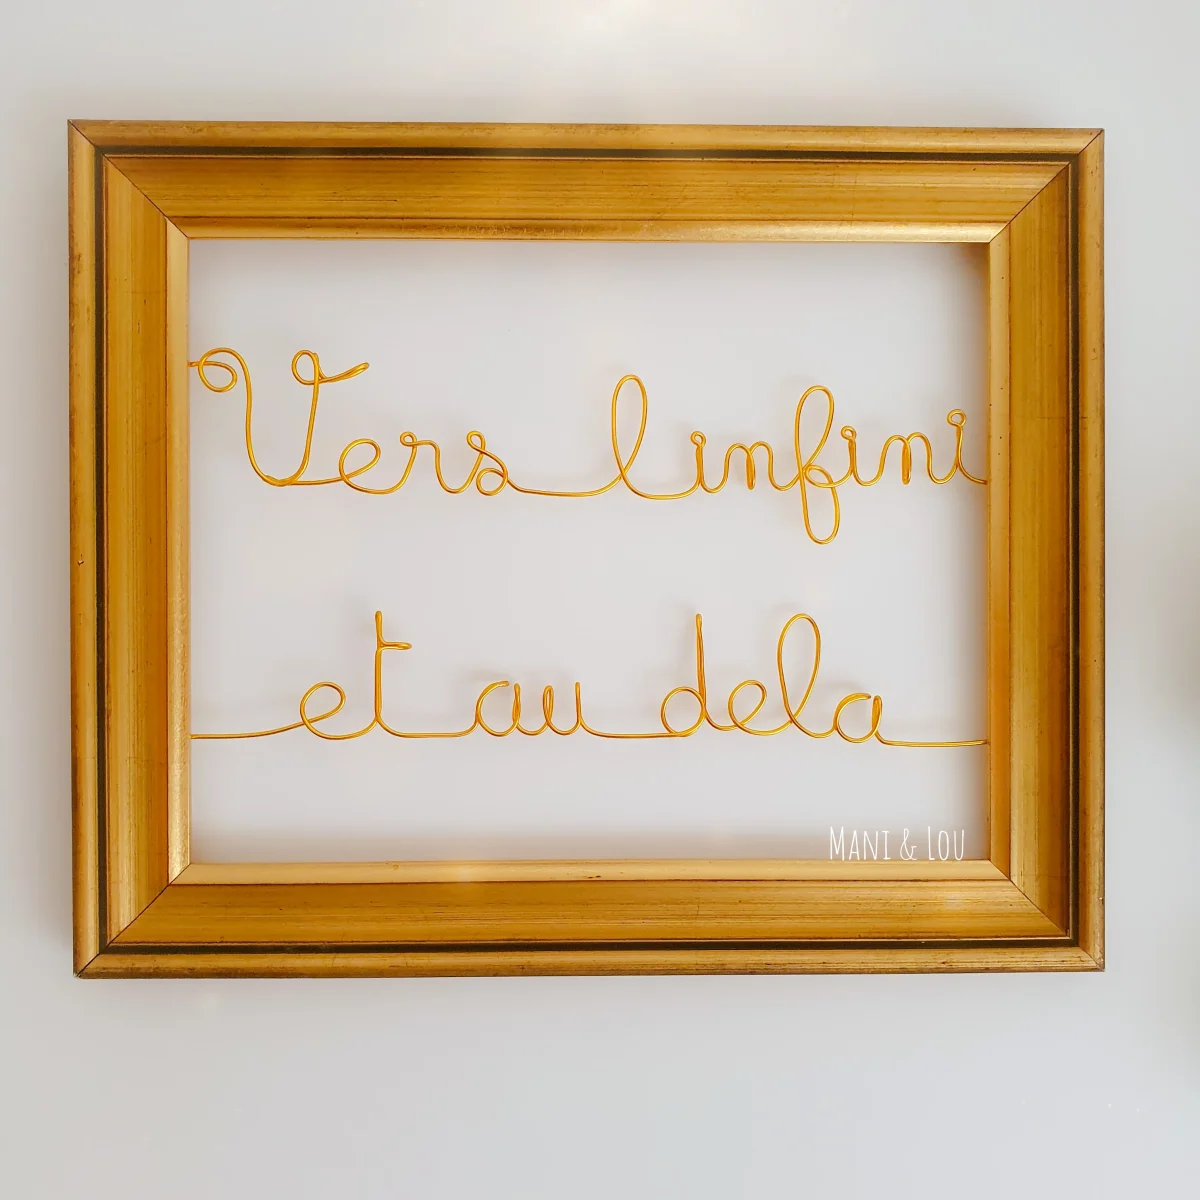 Vers linfini
et au dela
MANI & LOU